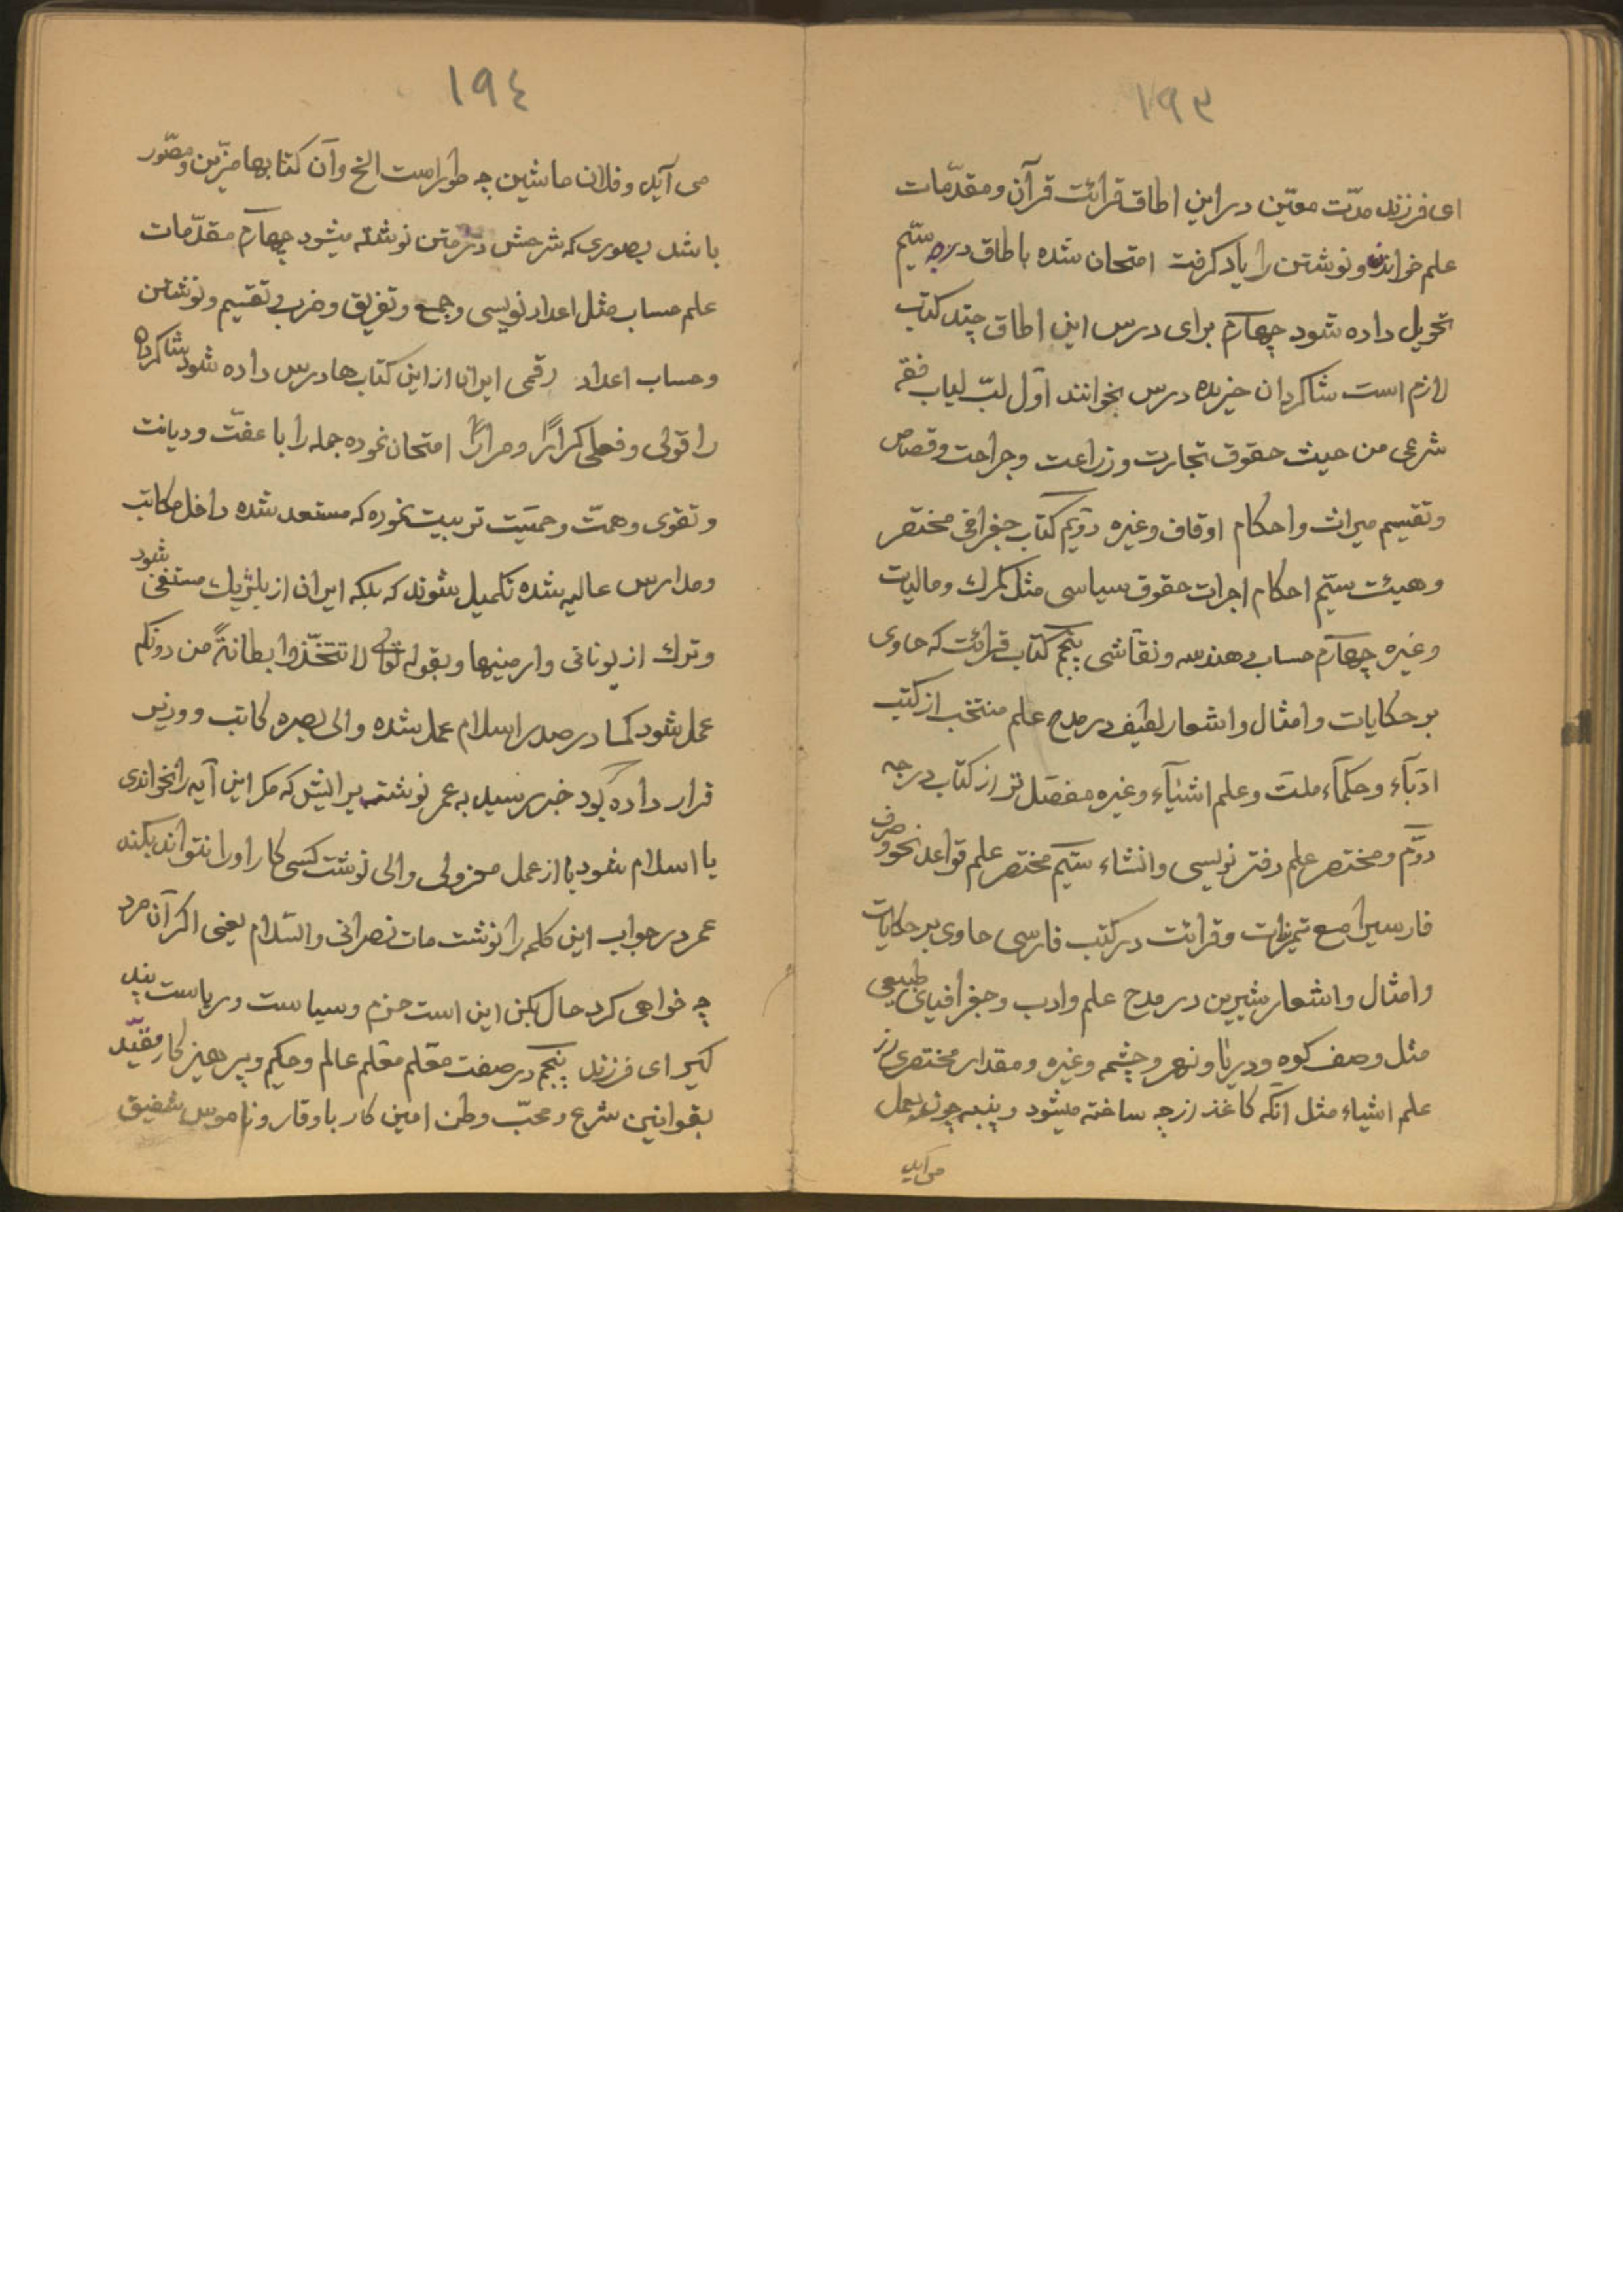 ١٩٣
ای فرزند مدّت معیّن در این اطاق قرائت قرآن و مقدّمات
علم خواندن و نوشتن را یاد گرفت امتحان شده باطاق درجه سیّم
تحویل داده شود چهارم برای درس این اطاق چند کتب
لازم است شاکردان خریده درس بخوانند اوّل لبّ لباب فقه
شرعی من حیث حقوق تجارت و زراعت و جراحت و قصاص
و تقسیم میراث و احکام اوقاف و غیره دویّم کتاب جغرافی مختصر
و هیئت سیّم احکام اجرات حقوق سیاسی مثل کمرك و مالیات
و غیره چهارم حساب هندسه و نقاشی پنجم کتاب قرائت که حاوی
بر حکایات و امثال و اشعار لطیف در مدح علم منتخب از کتب
ادبآء و حکمآء ملت و علم اشیآء و غیره مفصّل تر از کتاب درجه
دوّم و مختصر علم دفتر نویسی و انشاء سیّم مختصر علم قواعد نحو و صرف
فارسیرا مع تمرینات و قرائت در کتب فارسی حاوی بر حکایات
و امثال و اشعار شیرین در مدح علم و ادب و جغرافیای طبیعی
مثل وصف کوه و دریا و نهر و چشمه و غیره و مقدار مختصری از
علم اشیاء مثل آنکه کاغذ از چه ساخته میشود و پنبه چون بعمل
می آید
١٩٤
می آید و فلان ماشین چه طور است الخ و آن کتابها مزّین و مصّور
باشد بصوری که شرحش در متن نوشته میشود چهارم مقدّمات
علم حساب مثل اعداد نویسی و جمع و تفریق و ضرب و تقسیم و نوشتن
و حساب اعداد رقمی ایرانا از این کتاب ها درس داده شود شاکردان
را قولی و فعلی کراراً و مراراً امتحان نموده جمله را با عفّت و دیانت
و تقوی و همّت و حمیّت تربیت نموده که مستعد شده داخل مکاتب
و مدارس عالیه شده تکمیل شوند که بلکه ایران از بلژیك مستغنی شود
و ترك از یونانی و ارمنیها و بقوله تعالی لا تتّخذوا بطانةً من دونکم
عمل شود کما در صدر اسلام عمل شده والی بصره کاتب و وزیر
قرار داده بود خبر رسید به عمر نوشت برائیش که مکر این آیه را نخواندی
یا اسلام شود یا از عمل معزولی والی نوشت کسی کار او را نتواند بکند
عمر در جواب این کلمه را نوشت مات نصرانی والسّلام یعنی اکر آن مرد
چه خواهی کرد حال بکن این است حزم و سیاست و ریاست پند
کیر ای فرزند پنجم در صفت معّلم معّلم عالم و حکیم و پرهیز کار مقیّد
بقوانین شرع و محبّ وطن امین کار با وقار و ناموس شفیق